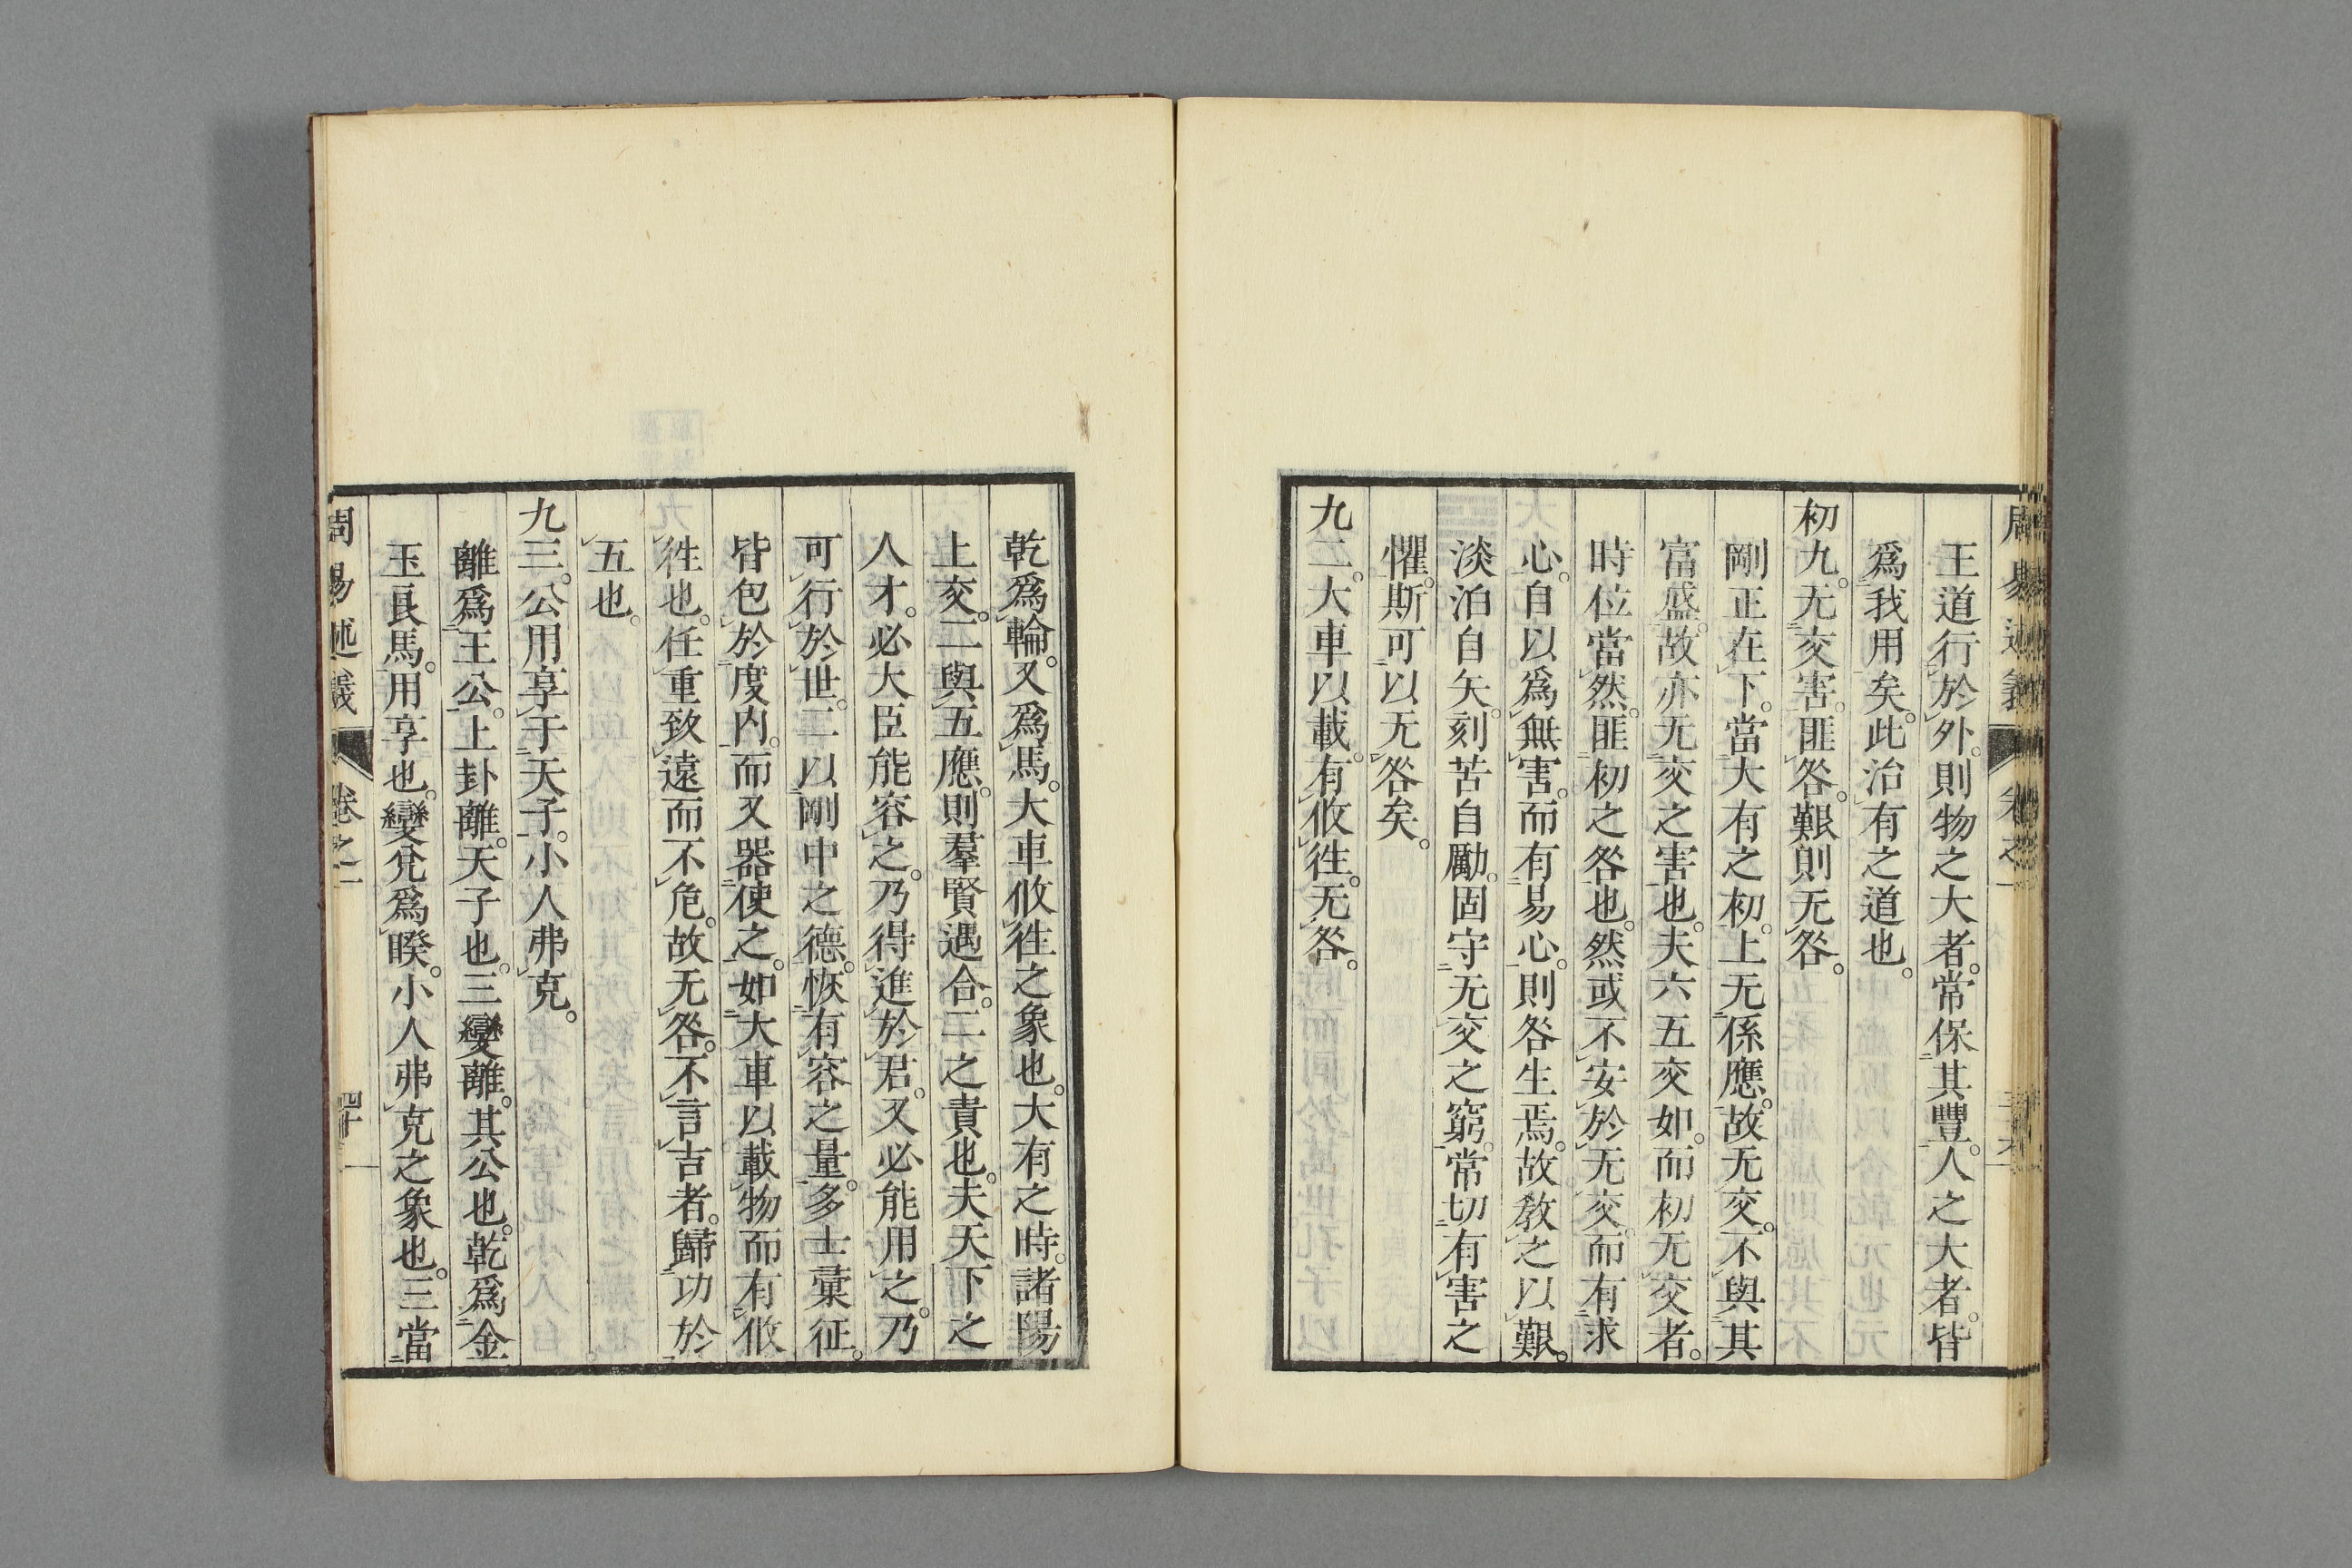 周易述義　卷之一
王道行於外。則物之大者。常保其豐。人之大者。皆
爲我用矣。此治有之道也。
初九。无交害。匪咎。艱則无咎。
剛正在下。當大有之初。上无係應。故无交。不與其
富盛。故亦无交之害也。夫六五交如。而初无交者。
時位當然。匪初之咎也。然或不安於无交。而有求
心。自以爲無害。而有易心。則咎生焉。故教之以艱。
淡泊自矢。刻苦自勵。固守无交之窮。常切有害之
懼。斯可以无咎矣。
九二。大車以載。有攸往。无咎。
乾爲輪。又爲馬。大車攸往之象也。大有之時。諸陽
上交。二與五應。則羣賢遇合。二之責也。夫天下之
人才。必大臣能容之。乃得進於君。又必能用之。乃
可行於世。二以剛中之德。恢有容之量。多士彙征。
皆包於度内。而又器使之。如大車以載物而有攸
往也。任重致遠而不危。故无咎。不言吉者。歸功於
五也。
九三。公用享于天子。小人弗克。
離爲王公。上卦離。天子也。三變離。其公也。乾爲金
玉良馬。用享也。變兌爲睽。小人弗克之象也。三當
周易述義　卷之一　四十